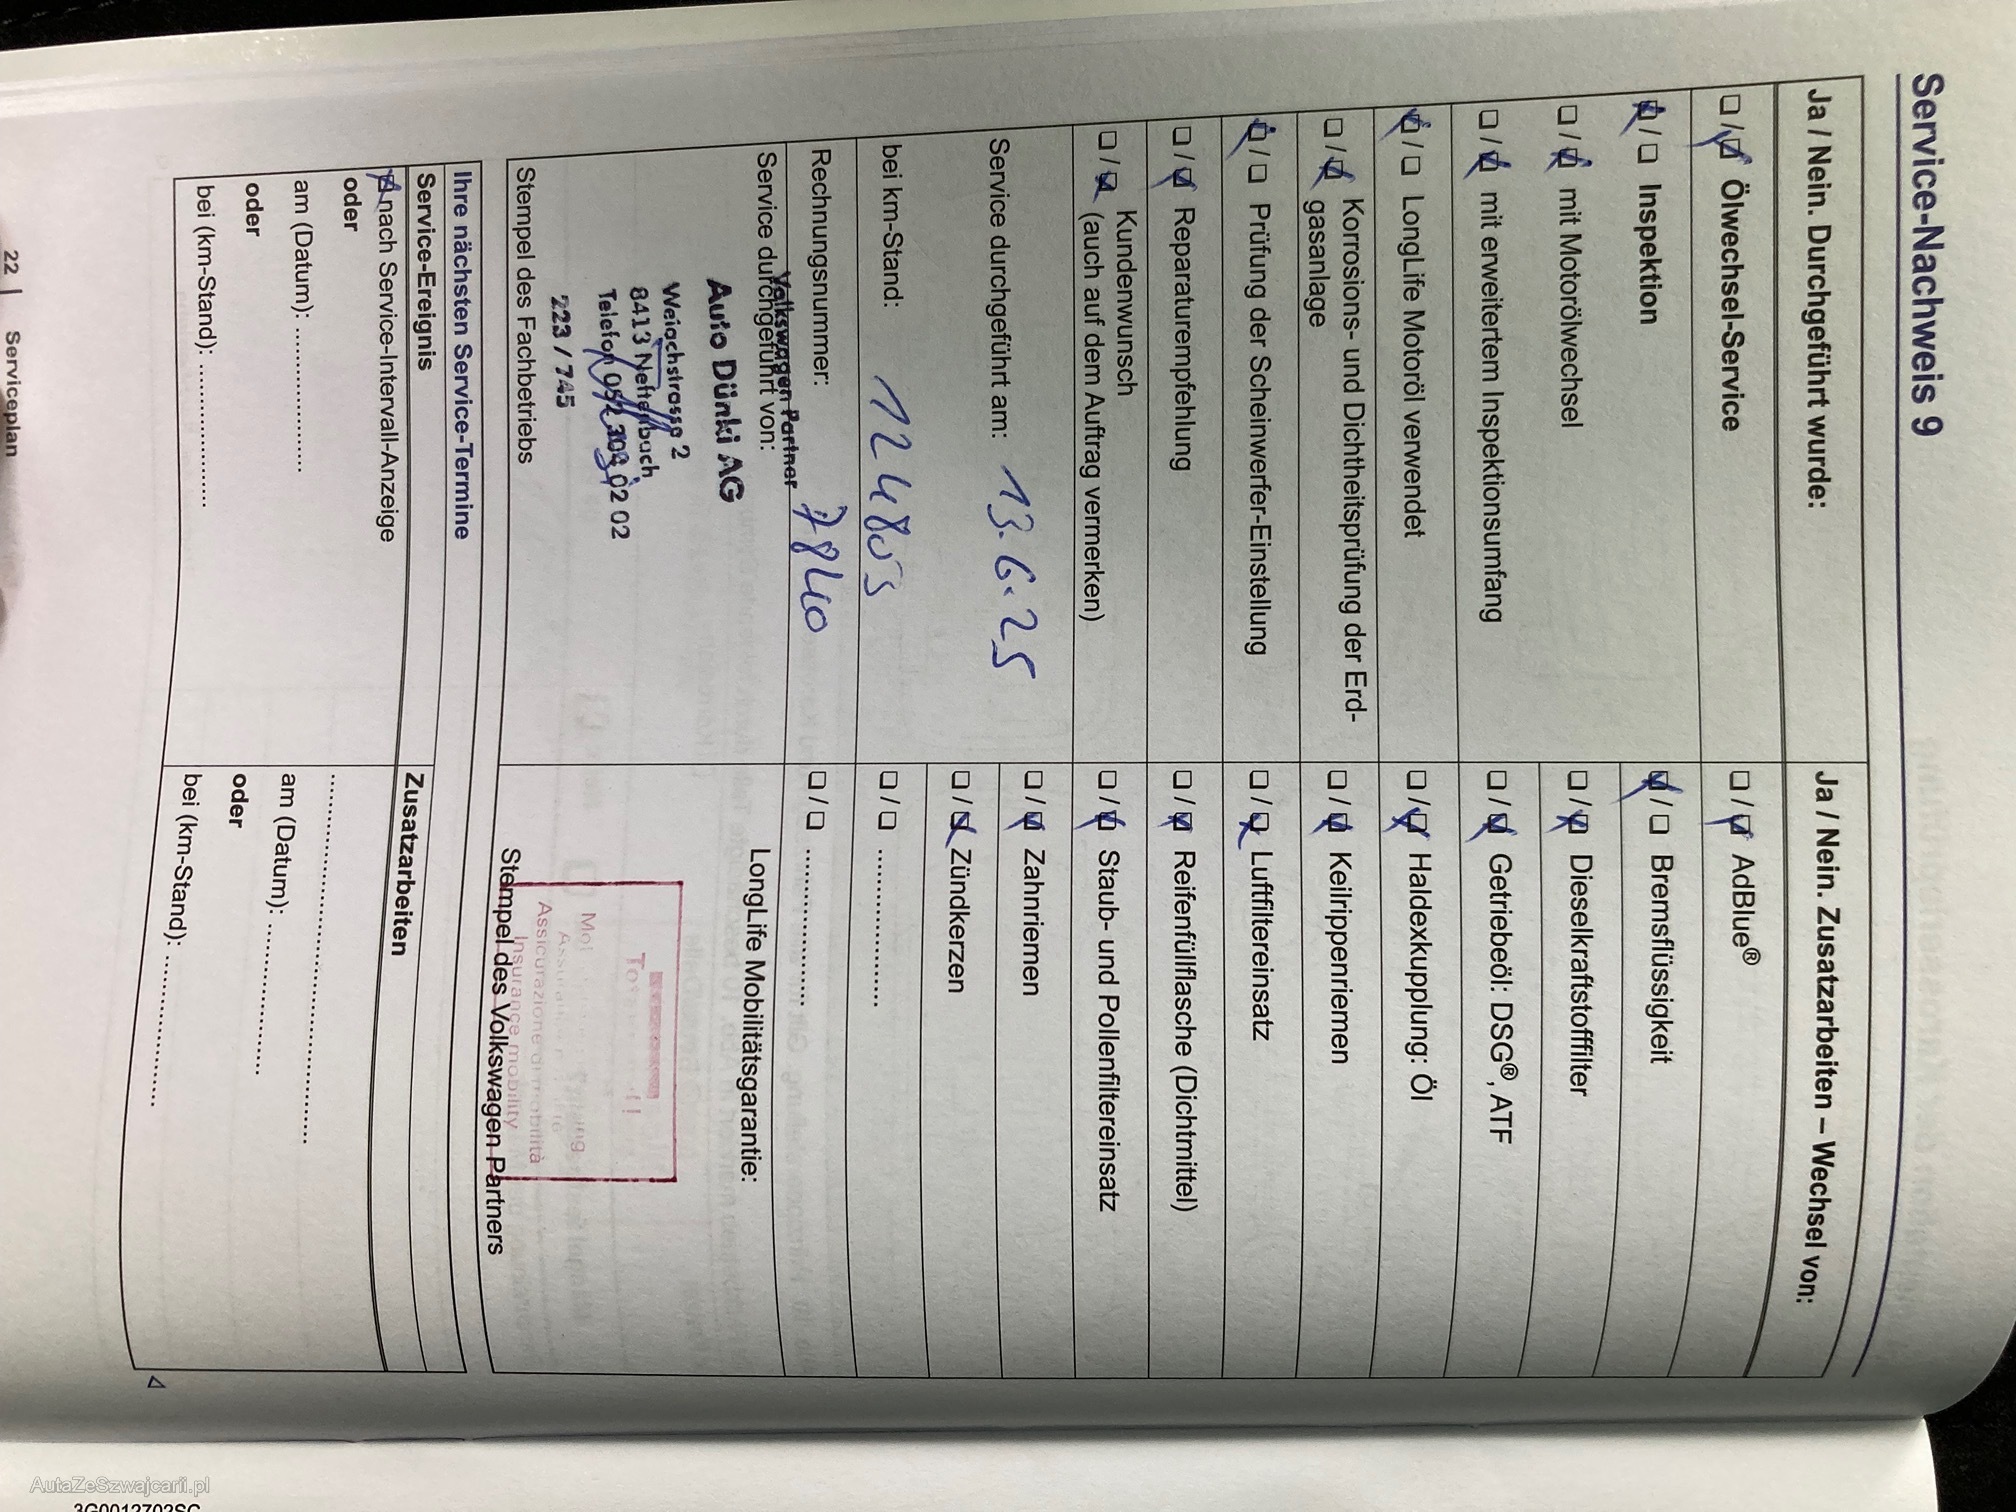 Service-Nachweis 9
Ja / Nein. Durchgeführt wurde:
Ja / Nein. Zusatzarbeiten – Wechsel von:
☐ / ☒ Ölwechsel-Service
☐ / ☒ AdBlue®
☒ / ☐ Inspektion
☒ / ☐ Bremsflüssigkeit
☐ / ☒ mit Motorölwechsel
☐ / ☒ Dieselkraftstofffilter
☐ / ☒ mit erweitertem Inspektionsumfang
☐ / ☒ Getriebeöl: DSG®, ATF
☒ / ☐ LongLife Motoröl verwendet
☐ / ☒ Haldexkupplung: Öl
☐ / ☒ Korrosions- und Dichtheitsprüfung der Erd-
gasanlage
☐ / ☒ Keilrippenriemen
☒ / ☐ Prüfung der Scheinwerfer-Einstellung
☐ / ☒ Luftfiltereinsatz
☐ / ☒ Reparaturempfehlung
☐ / ☒ Reifenfüllflasche (Dichtmittel)
☐ / ☒ Kundenwunsch
(auch auf dem Auftrag vermerken)
☐ / ☒ Staub- und Pollenfiltereinsatz
Service durchgeführt am: 13.6.25
☐ / ☒ Zahnriemen
☐ / ☒ Zündkerzen
bei km-Stand: 124803
☐ / ☐ ....................
Rechnungsnummer: 7840
☐ / ☐ ....................
Service durchgeführt von:
Volkswagen Partner
Auto Dünki AG
Weiachstrasse 2
8413 Neftenbach
Telefon 052 304 02 02
223 / 745
Stempel des Fachbetriebs
LongLife Mobilitätsgarantie:
Assicurazione di mobilità
Insurance mobility
Stempel des Volkswagen Partners
Ihre nächsten Service-Termine
Service-Ereignis
Zusatzarbeiten
☒ nach Service-Intervall-Anzeige
oder
am (Datum): ....................
am (Datum): ....................
oder
oder
bei (km-Stand): ....................
bei (km-Stand): ....................
22 | Serviceplan
AutaZeSzwajcarii.pl
3G0012702SC